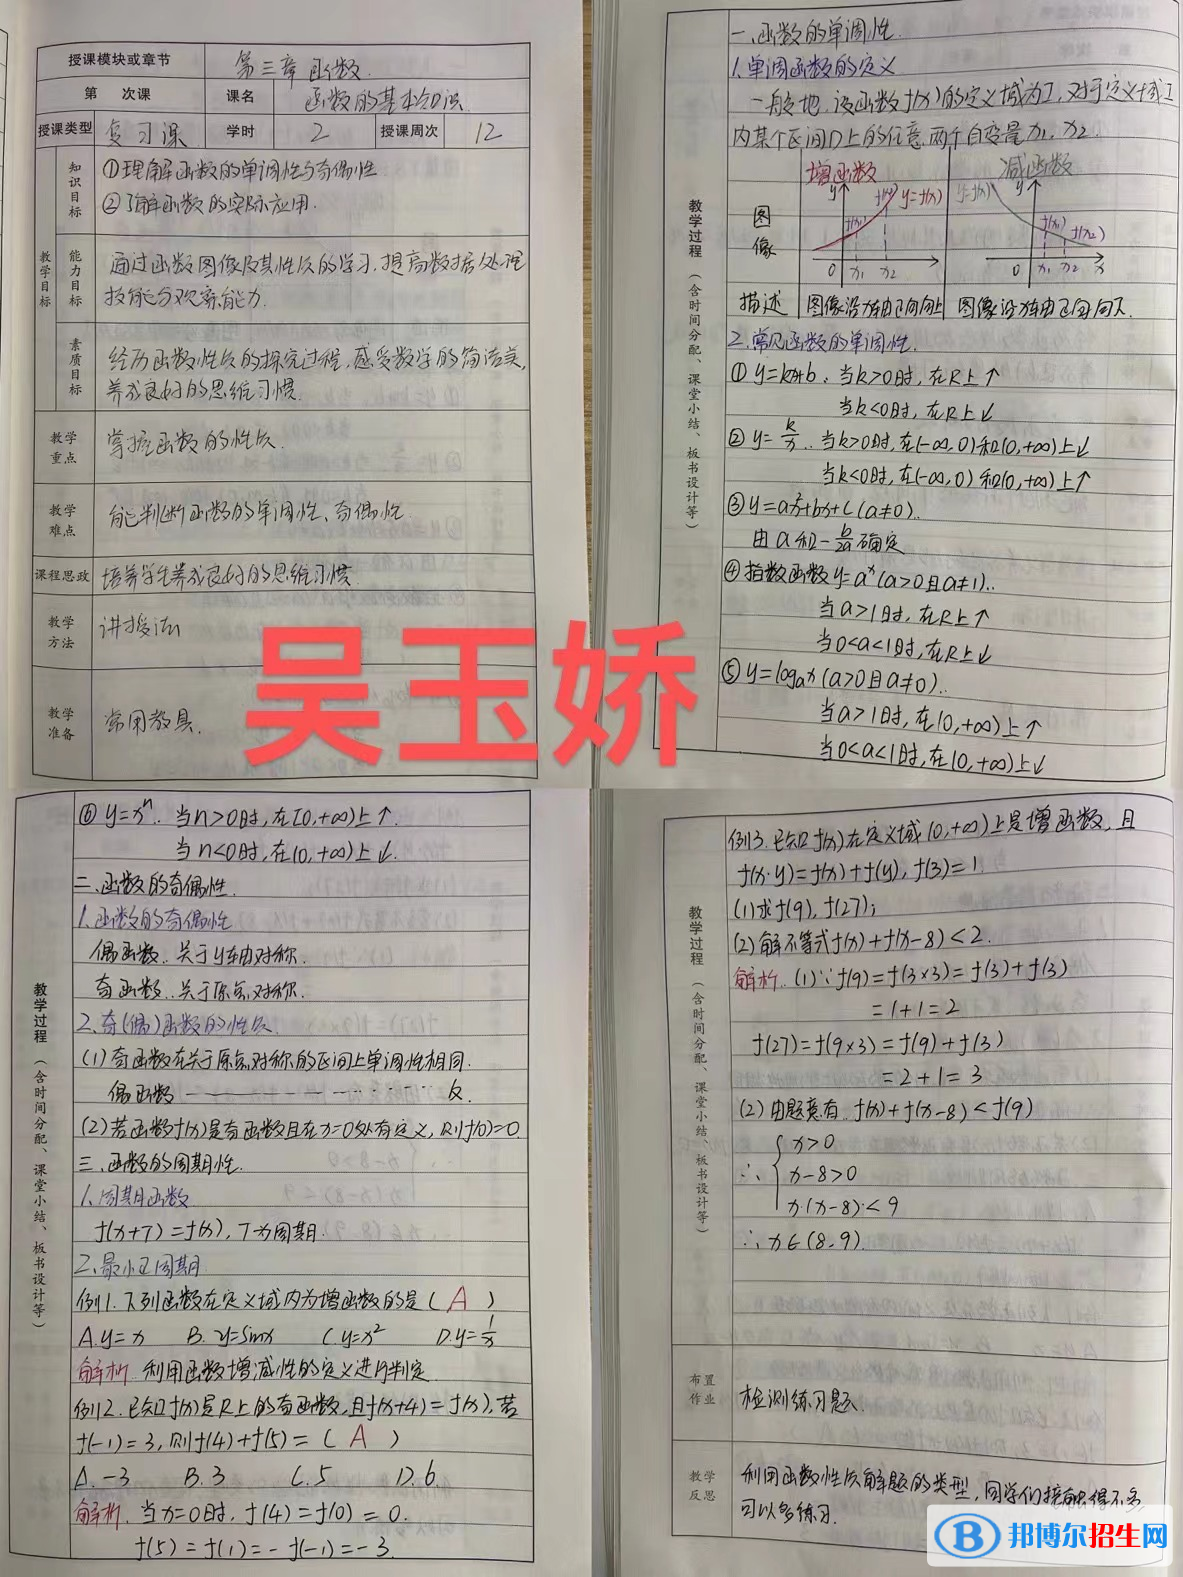 授课模块或章节 第三章 函数.
第 次课 课名 函数的基本知识
授课类型 复习课 学时 2 授课周次 12
教学目标
知识目标
①理解函数的单调性与奇偶性
②了解函数的实际应用.
能力目标
通过函数图像及其性质的学习,提高数据处理
技能与观察能力.
素质目标
经历函数性质的探究过程,感受数学的简洁美,
养成良好的思维习惯.
教学重点
掌握函数的性质.
教学难点
能判断函数的单调性、奇偶性.
课程思政 培养学生养成良好的思维习惯.
教学方法
讲授法
教学准备
常用教具.
吴玉娇
教学过程(含时间分配、课堂小结、板书设计等)
一.函数的单调性.
1.单调函数的定义
一般地,设函数f(x)的定义域为I,对于定义域I
内某个区间D上的任意两个自变量x₁,x₂.
图像
增函数 减函数
y f(x₂) y=f(x) y=f(x) y
f(x₁) f(x₁) f(x₂)
0 x₁ x₂ 0 x₁ x₂ x
描述 图像沿x轴正向向上 图像沿x轴正向向下.
2.常见函数的单调性.
①y=kx+b,当k>0时,在R上↑
当k<0时,在R上↓
②y=k/x.当k>0时,在(-∞,0)和(0,+∞)上↓
当k<0时,在(-∞,0)和(0,+∞)上↑
③y=ax²+bx+c(a≠0).
由a和-b/2a确定
④指数函数y=aˣ(a>0且a≠1).
当a>1时,在R上↑
当0<a<1时,在R上↓
⑤y=logₐx(a>0且a≠0).
当a>1时,在(0,+∞)上↑
当0<a<1时,在(0,+∞)上↓
教学过程(含时间分配、课堂小结、板书设计等)
⑥y=xⁿ.当n>0时,在[0,+∞)上↑.
当n<0时,在(0,+∞)上↓.
二.函数的奇偶性.
1.函数的奇偶性
偶函数..关于y轴对称.
奇函数..关于原点对称.
2.奇(偶)函数的性质.
(1)奇函数在关于原点对称的区间上单调性相同.
偶函数 反.
(2)若函数f(x)是奇函数且在x=0处有定义,则f(0)=0
三.函数的周期性.
1.周期函数
f(x+T)=f(x),T为周期.
2.最小正周期
例1.下列函数在定义域内为增函数的是(A)
A.y=x B.y=sinx C.y=x² D.y=1/x
解析.利用函数增减性的定义进行判定
例2.已知f(x)是R上的奇函数,且f(x+4)=f(x),若
f(-1)=3,则f(4)+f(5)=(A)
A.-3 B.3 C.5 D.6.
解析.当x=0时,f(4)=f(0)=0.
f(5)=f(1)=-f(-1)=-3.
教学过程(含时间分配、课堂小结、板书设计等)
例3.已知f(x)在定义域(0,+∞)上是增函数,且
f(x·y)=f(x)+f(y),f(3)=1
(1)求f(9),f(27);
(2)解不等式f(x)+f(x-8)<2.
解析.(1)∵f(9)=f(3×3)=f(3)+f(3)
=1+1=2
f(27)=f(9×3)=f(9)+f(3)
=2+1=3
(2)由题意有.f(x)+f(x-8)<f(9)
x>0
∴ x-8>0
x·(x-8)<9
∴x∈(8,9).
布置作业
检测练习题.
教学反思
利用函数性质解题的类型,同学们接触得不多,
可以多练习.
邦博尔招生网